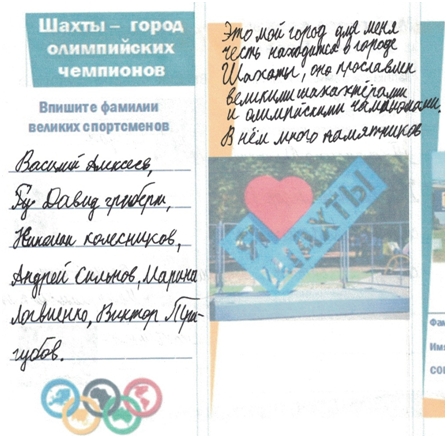 Шахты – город
олимпийских
чемпионов
Впишите фамилии
великих спортсменов
Василий Алексеев,
Николай Колесников,
Андрей Сильнов, Марина
Логвиенко, Виктор При-
губов.
Это мой город для меня
честь находится в городе
Шахаты, оно прославлен
великими шахатёрами
и олимпискими чампионами.
В нём много памятников
Я
ШАХТЫ
Фа
Им
СО